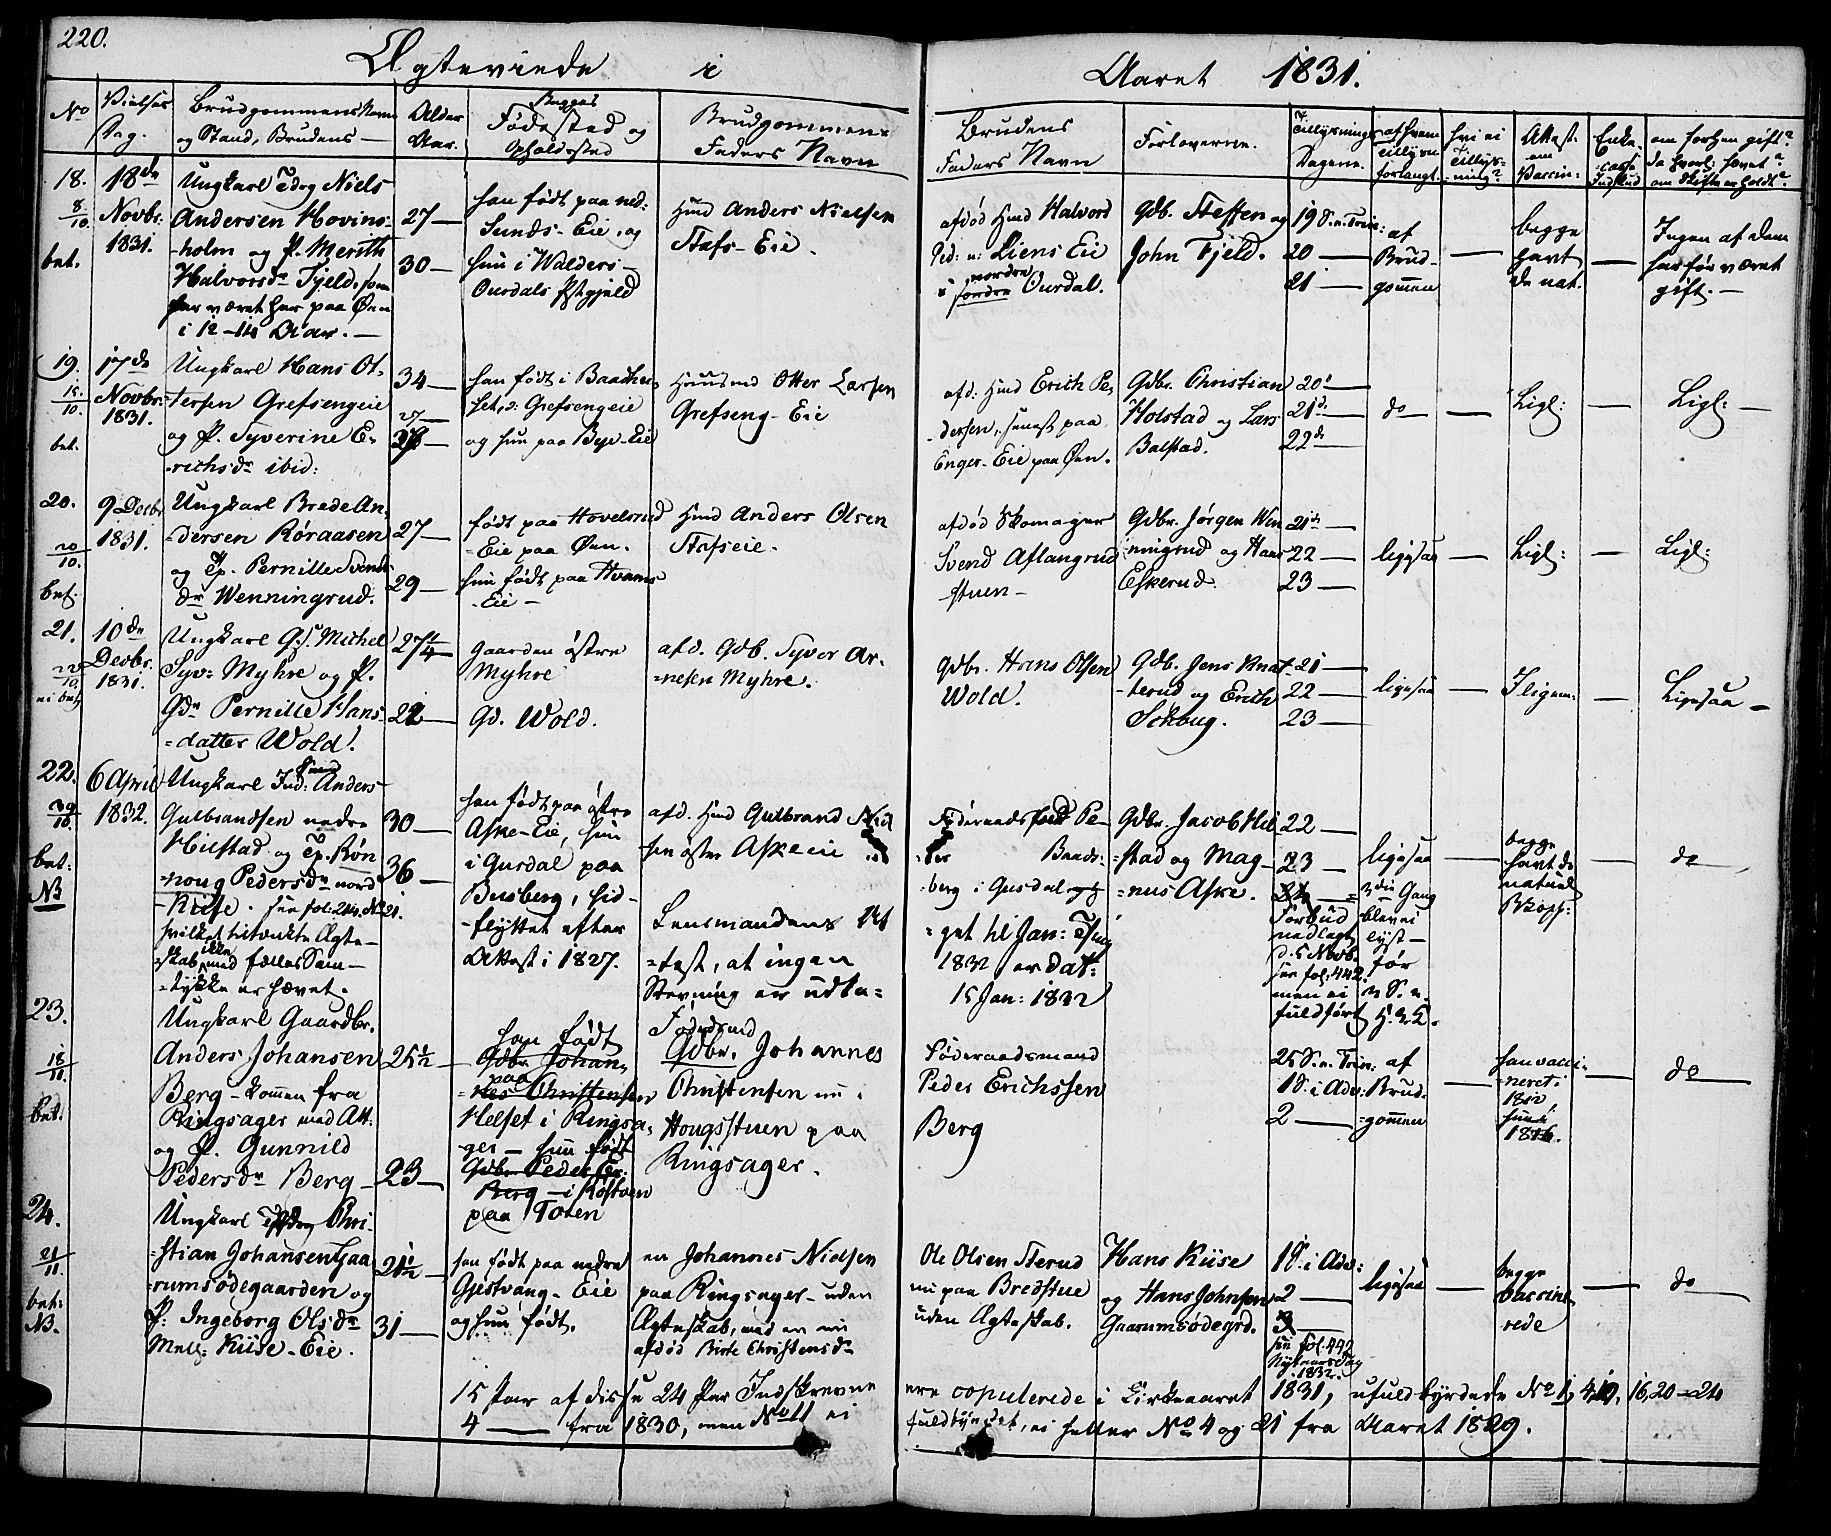 220.
Ægteviede i Aaret 1831.
No
Vielses Dag.
Brudgommens Navn og Stand, Brudens —
Alder Aar.
Begges Fødested og Opholdssted
Brudgommens Faders Navn
Brudens Faders Navn
Forloverne.
Tillysnings Dagene.
af hvem Tillysn: forlangt
hvi ei Tillys-ning?
Attest. om Vaccin:
Enke-casse Indskud
om før gift? da hvorl: hævet? om Skifte er holdt?
18.
8/10.
bet.
18de Novbr. 1831.
Ungkarl Niels
Andersen Hovins-
-holm og P. Merith
Halvorsdr Fjeld, som
har været her paa Øen
i 12-14 Aar. —
27 —
30 —
han født paa ned:
Sunds-Eie, og
hun i Walders-
Ourdals Pstgjeld
Hmd Anders Nielsen
Stafs-Eie.
afdød Hmd Halvord
Ped: n: Liens Eie
i søndre nordre Ourdal.
Gdb. Steffen og
John Fjeld.
19 S. n. Trin:
20 —
21 —
af
Brud-
gommen
—
begge
havt
de nat.
—
Ingen af dem
har før været
gift. —
19.
15/10.
bet.
17de Novbr. 1831.
Ungkarl Hans Ot-
tersen Grefsengeie
og P. Syverine E-
-richsdr ibid:
34 —
27 —
han født i
Grefsengeie
og hun paa Bye-Eie
Huusmd Otter Larsen
Grefseng-Eie
afd: Hmd Erich Pe-
dersen, senest paa
Enger-Eie paa Øen.
Gdbr. Christian
Holstad og Lars
Balstad.
20 —
21d. —
22de —
do —
—
Ligl:
—
Ligl: —
20.
20/10.
bet.
9 Decbr 1831.
Ungkarl Brede An-
-dersen Røraasen
og Ep. Pernille Svends-
dr Wenningrud.
27 —
29 —
født paa Hovelsrud
-Eie paa Øen.
hun født paa Hvams
-Eie —
Hmd Anders Olsen
Stafseie.
afdød Skomager
Svend Aflangrud
stuen —
Gdbr. Jørgen Wen
ningrud og Hans
Eskerud
21de —
22 —
23 —
ligesaa
—
Ligl:
—
Ligl:
21.
22/10
ei bet.
10de Decbr. 1831.
Ungkarl G.s. Michel
Syv: Myhre og P.
Gdr Pernille Hans-
=datter Wold.
27 1/4 —
22 —
Gaarden østre
Myhre
Gd. Wold.
afd. Gdb. Syver Ar-
=nesen Myhre.
Gdbr. Hans Olsen
Wold.
Gdb. Jens Knat
-terud og Erich
Sohbug.
21 —
22 —
23 —
ligesaa
—
—
Ligesaa —
22.
30/10.
bet:
NB
6 April 1832.
Ungkarl Ind: Anders
Gulbrandsen nedre
Hielstad og Ep. Røn
=noug Pedersdr nord
-Kiise. see fol: 214. No 21.
hvilket tiltænkte Ægte-
=skab ikke med fælles Sam-
-tykke er hævet.
30 —
36 —
han født paa østre
Aske-Eie, hun
i Gusdal paa
Busberg, hid-
-flyttet efter
Attest i 1827.
afd. Hmd Gulbrand
sen østre Askeeie
Lensmandens At
=test, at ingen
Stevning er udta=
Føderaadsmd Pe-
-der Baads:
-berg i Gusdal
=get til Jan: Ting
1832 er dat:
15 Jan: 1832
Gdbr. Jacob Hiel
-stad og Mag-
=nus Aske.
22 —
23 —
24 —
Forbud
nedlagt
d. 5 Novb.
see fol. 442.
men ei
fuldført
ligesaa
3die Gang
blev ei
lyst —
før
—
begge
havt de
naturl
Kopp:
—
do
23.
18/11.
bet.
Ungkarl Gaardbr.
Anders Johansen
Berg - kommen fra
Ringsager med Att:
og P. Gunnild
Pedersdr Berg —
25 1/2 —
23 —
han født
Gdbr Johan-
paa
=nes Christensen
Helset i Ringsa-
ger — hun født
Gdbr Peder Er.
Berg — i Kostveen
paa Toten
Føderaadsmd
Gdbr. Johannes
Christensen nu i
Hougsstuen paa
Ringsager.
Føderaadsmand
Peder Erichssen
Berg
25 S. n. Trin:
1 S. i Adv:
2 —
af
Brud-
-gommen
—
han vacci-
-neret i
1812,
hun i
1816.
—
do
24.
21/11.
bet:
NB.
Ungkarl Chri-
=stian Johansen Gaa
-rumsødegaarden og
P: Ingeborg Olsdr
Mell: Kiise-Eie.
21 1/2 —
31 —
han født paa nedre
Gjestvang-Eie
og hun født.
er Johannes Nielsen
paa Ringsager - uden
Ægteskab, med en nu
afdød Birte Christensdr
Ole Olsen Sterud
nu paa Bredstue
uden Ægteskab.
Hans Kiise
og Hans Johnsen
Gaarumsødegrd.
1 S. i Adv:
2 —
3 —
see fol. 442
Nytaarsdag
1832.
ligesaa
—
begge
vaccine-
rede
—
do
15 Par af disse 24 Par Indskrevne ere copulerede i Kirkeaaret 1831, ufuldbyrdede No 1, 4, 10, 16, 20-24
4 — fra 1830, men No 11 ei fuldbyrdet, ei heller No 4 og 21 fra Aaret 1829.